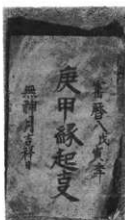 寳暦八戊寅年
庚甲縁起叓
無神月吉祥日